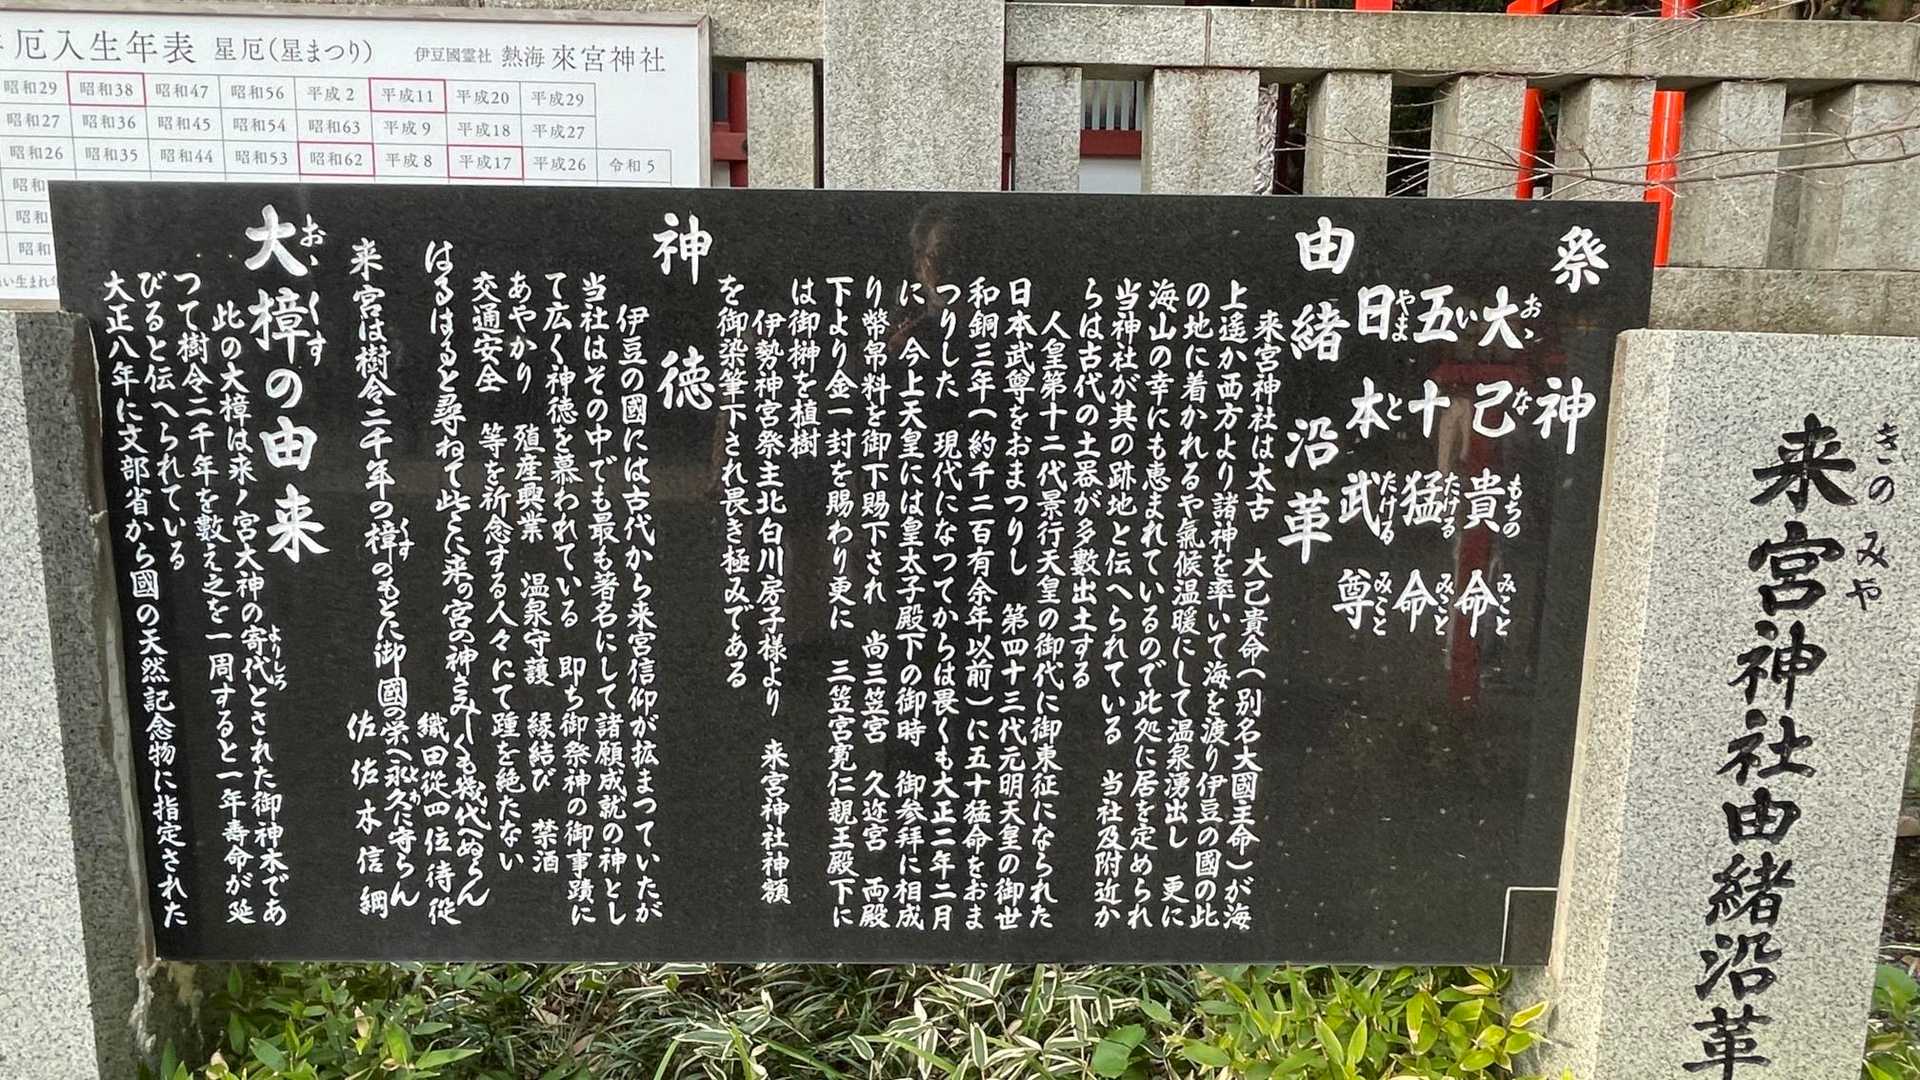 厄入生年表 星厄（星まつり） 伊豆國霊社 熱海 來宮神社
昭和29 昭和38 昭和47 昭和56 平成2 平成11 平成20 平成29
昭和27 昭和36 昭和45 昭和54 昭和63 平成9 平成18 平成27
昭和26 昭和35 昭和44 昭和53 昭和62 平成8 平成17 平成26 令和5
昭和
昭和
昭和
い生まれ年
来宮神社由緒沿革
きのみや
祭神
大己貴命
おゝなもちのみこと
五十猛命
いたけるみこと
日本武尊
やまとたけるみこと
由緒沿革
来宮神社は太古 大己貴命（別名大國主命）が海
上遥か西方より諸神を率いて海を渡り伊豆の國の此
の地に着かれるや氣候温暖にして温泉湧出し 更に
海山の幸にも恵まれているので此処に居を定められ
当神社が其の跡地と伝へられている 当社及附近か
らは古代の土器が多數出土する
人皇第十二代景行天皇の御代に御東征になられた
日本武尊をおまつりし 第四十三代元明天皇の御世
和銅三年（約千二百有余年以前）に五十猛命をおま
つりした 現代になつてからは畏くも大正二年二月
に 今上天皇には皇太子殿下の御時 御参拝に相成
り幣帛料を御下賜下され 尚三笠宮 久迩宮 両殿
下より金一封を賜わり更に 三笠宮寛仁親王殿下に
は御榊を植樹
伊勢神宮祭主北白川房子様より 来宮神社神額
を御染筆下され畏き極みである
神徳
伊豆の國には古代から来宮信仰が拡まつていたが
当社はその中でも最も著名にして諸願成就の神とし
て広く神徳を慕われている 即ち御祭神の御事蹟に
あやかり 殖産興業 温泉守護 縁結び 禁酒
交通安全 等を祈念する人々にて踵を絶たない
はるばると尋ねて此とに来の宮の神さみしくも幾代へぬらん
織田従四位侍従
来宮は樹令二千年の樟のもとに御國の栄へ永久に守らん
くす
とわ
佐佐木信綱
大樟の由来
おゝくす
此の大樟は来ノ宮大神の寄代とされた御神木であ
よりしろ
つて樹令二千年を數え之を一周すると一年寿命が延
びると伝へられている
大正八年に文部省から國の天然記念物に指定された